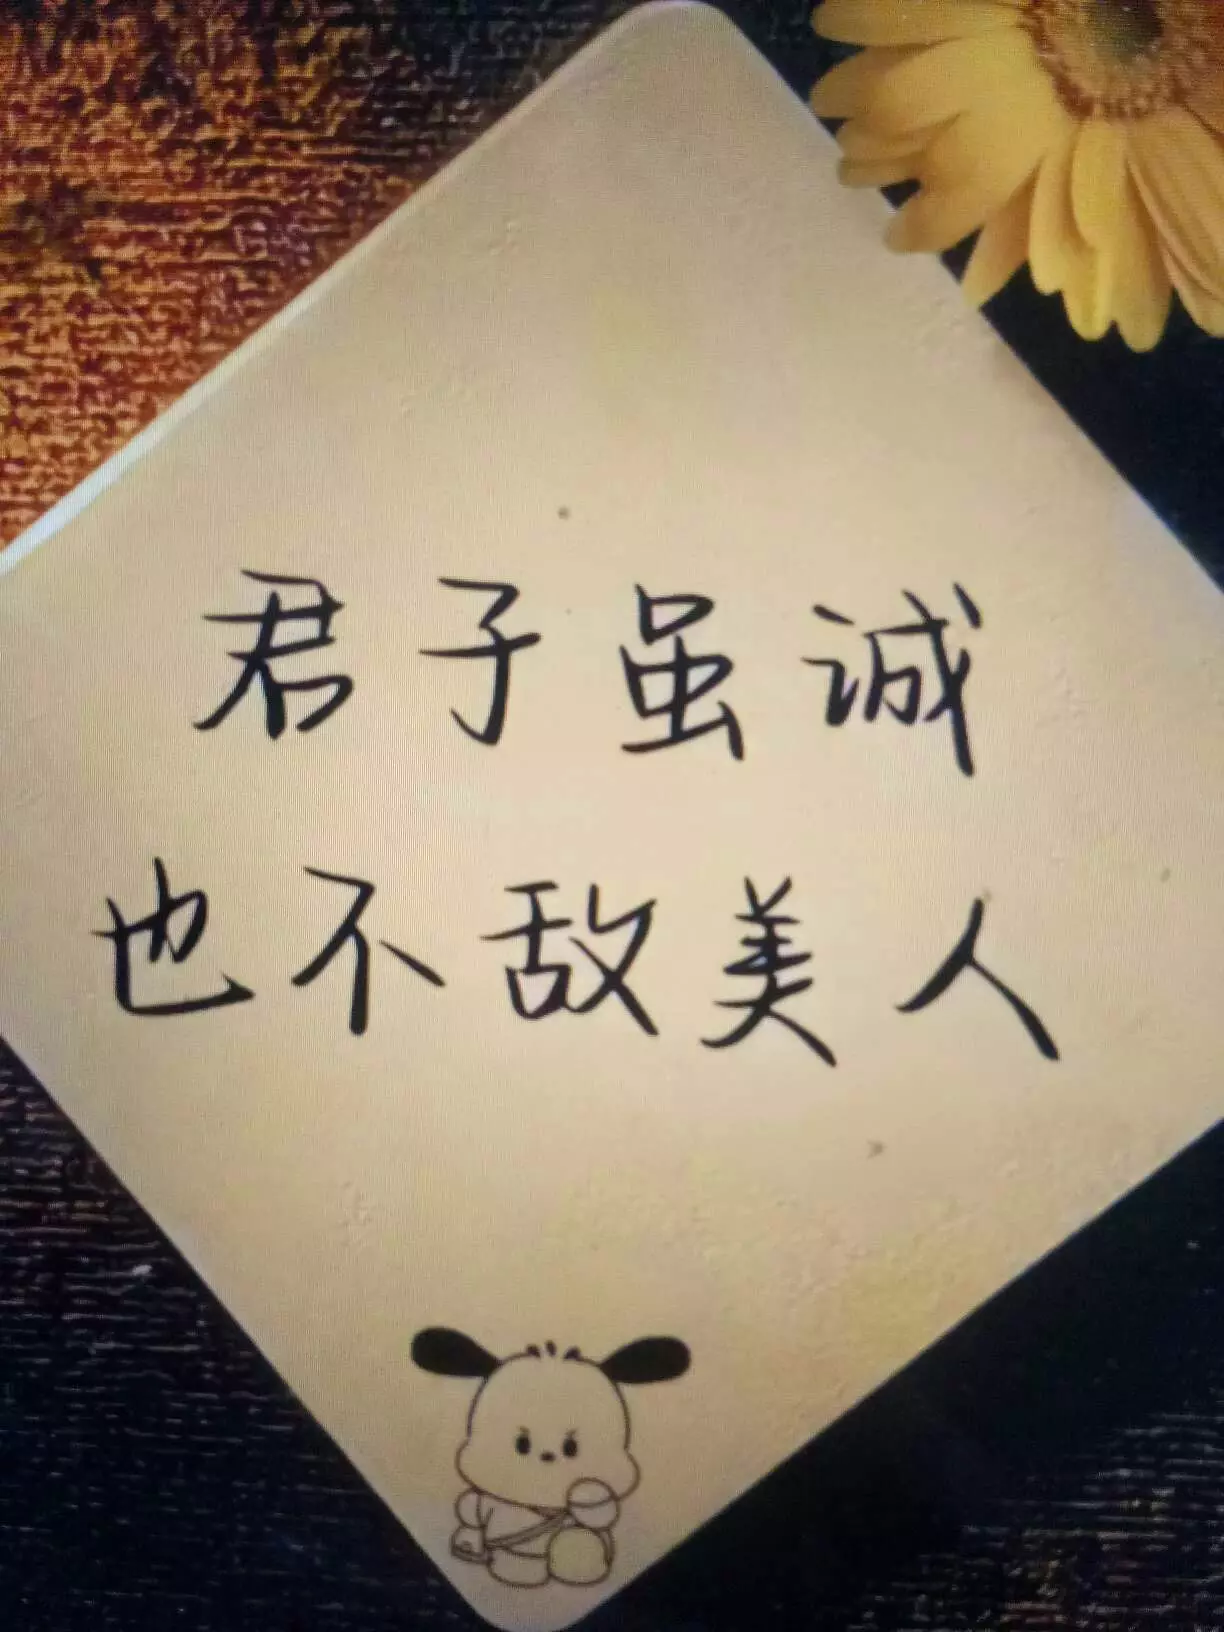 君子虽诚
也不敌美人